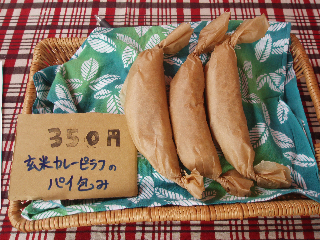 350円
玄米カレーピラフの
パイ包み